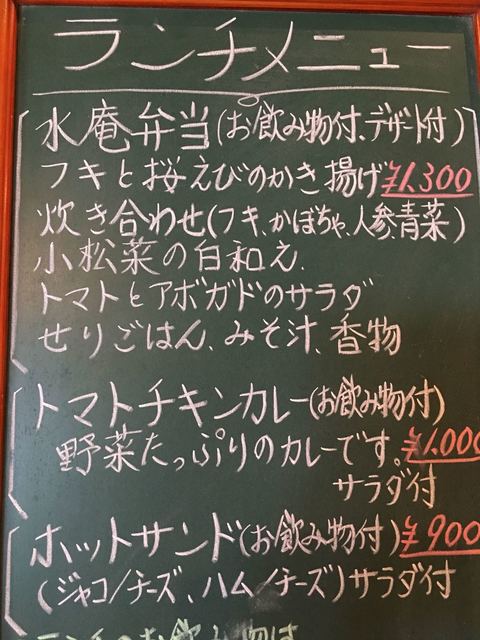 ランチメニュー
水庵弁当(お飲み物付、デザート付)
フキと桜えびのかき揚げ ¥1,300
炊き合わせ(フキ、かぼちゃ、人参、青菜)
小松菜の白和え、
トマトとアボガドのサラダ
せりごはん、みそ汁、香物
トマトチキンカレー(お飲み物付)
野菜たっぷりのカレーです。¥1,000
サラダ付
ホットサンド(お飲み物付) ¥900
(ジャコ/チーズ、ハム/チーズ)サラダ付
ランチのお飲み物は